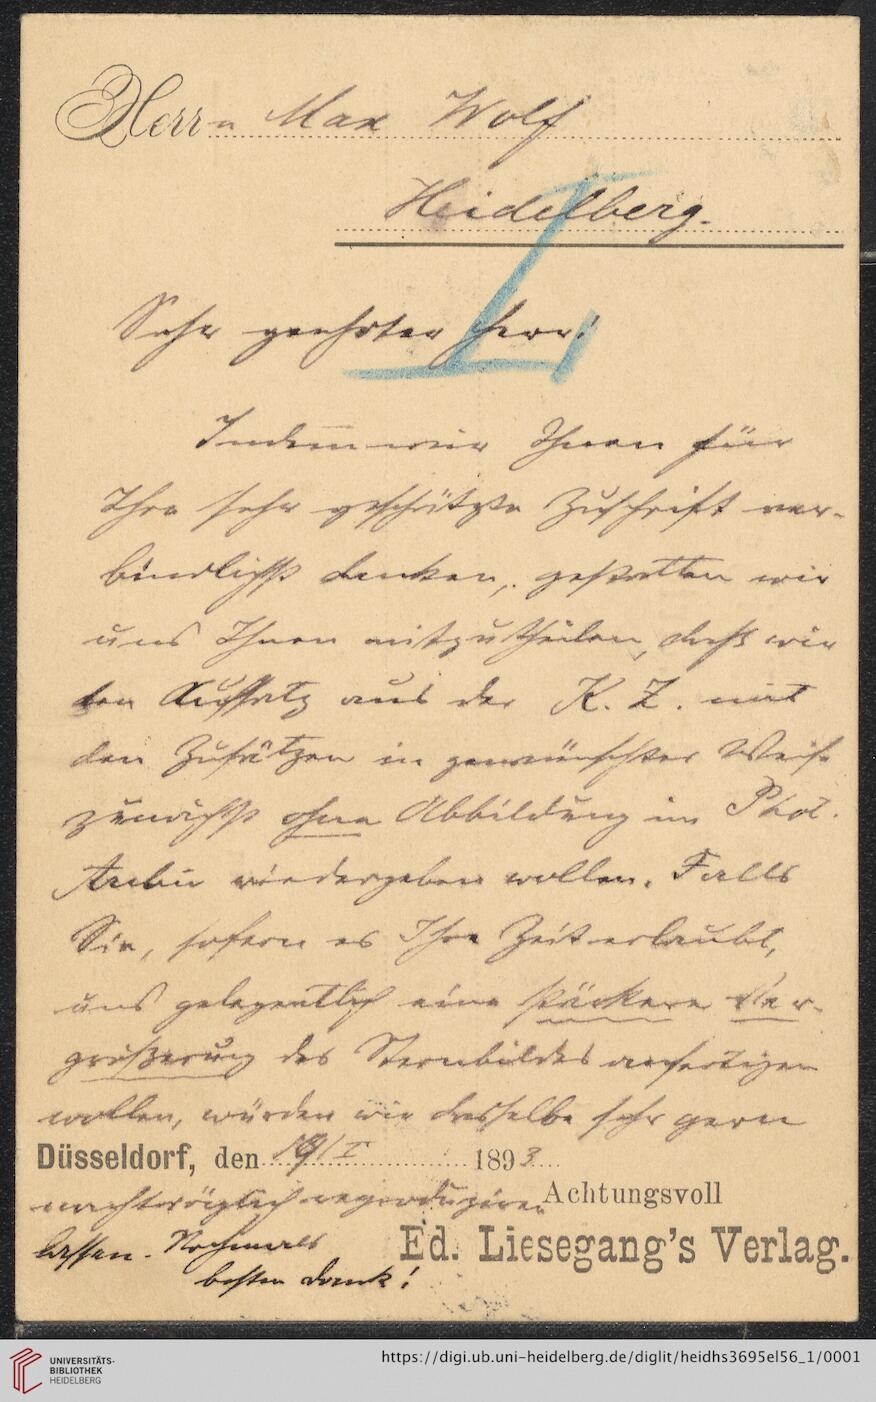 Herrn Max Wolf
Heidelberg.
Sehr geehrter Herr!
Indem wir Ihnen für
Ihre sehr geschätzte Zuschrift ver-
bindlichst danken, gestatten wir
uns Ihnen mitzutheilen, daß wir
den Aufsatz aus der K. Z. mit
den Zusätzen in gewünschter Weise
zunächst ohne Abbildung im Phot.
Archiv wiedergeben wollen. Falls
Sie, sofern es Ihre Zeit erlaubt,
uns gelegentlich eine stärkere Ver-
größerung des Sternbildes anfertigen
wollen, würden wir dasselbe sehr gern
Düsseldorf, den 19/I 1893
nachträglich reproduziren
Achtungsvoll
lassen. Nochmals
Ed. Liesegang's Verlag.
besten Dank!
UNIVERSITÄTS-
BIBLIOTHEK
HEIDELBERG
https://digi.ub.uni-heidelberg.de/diglit/heidhs3695el56_1/0001